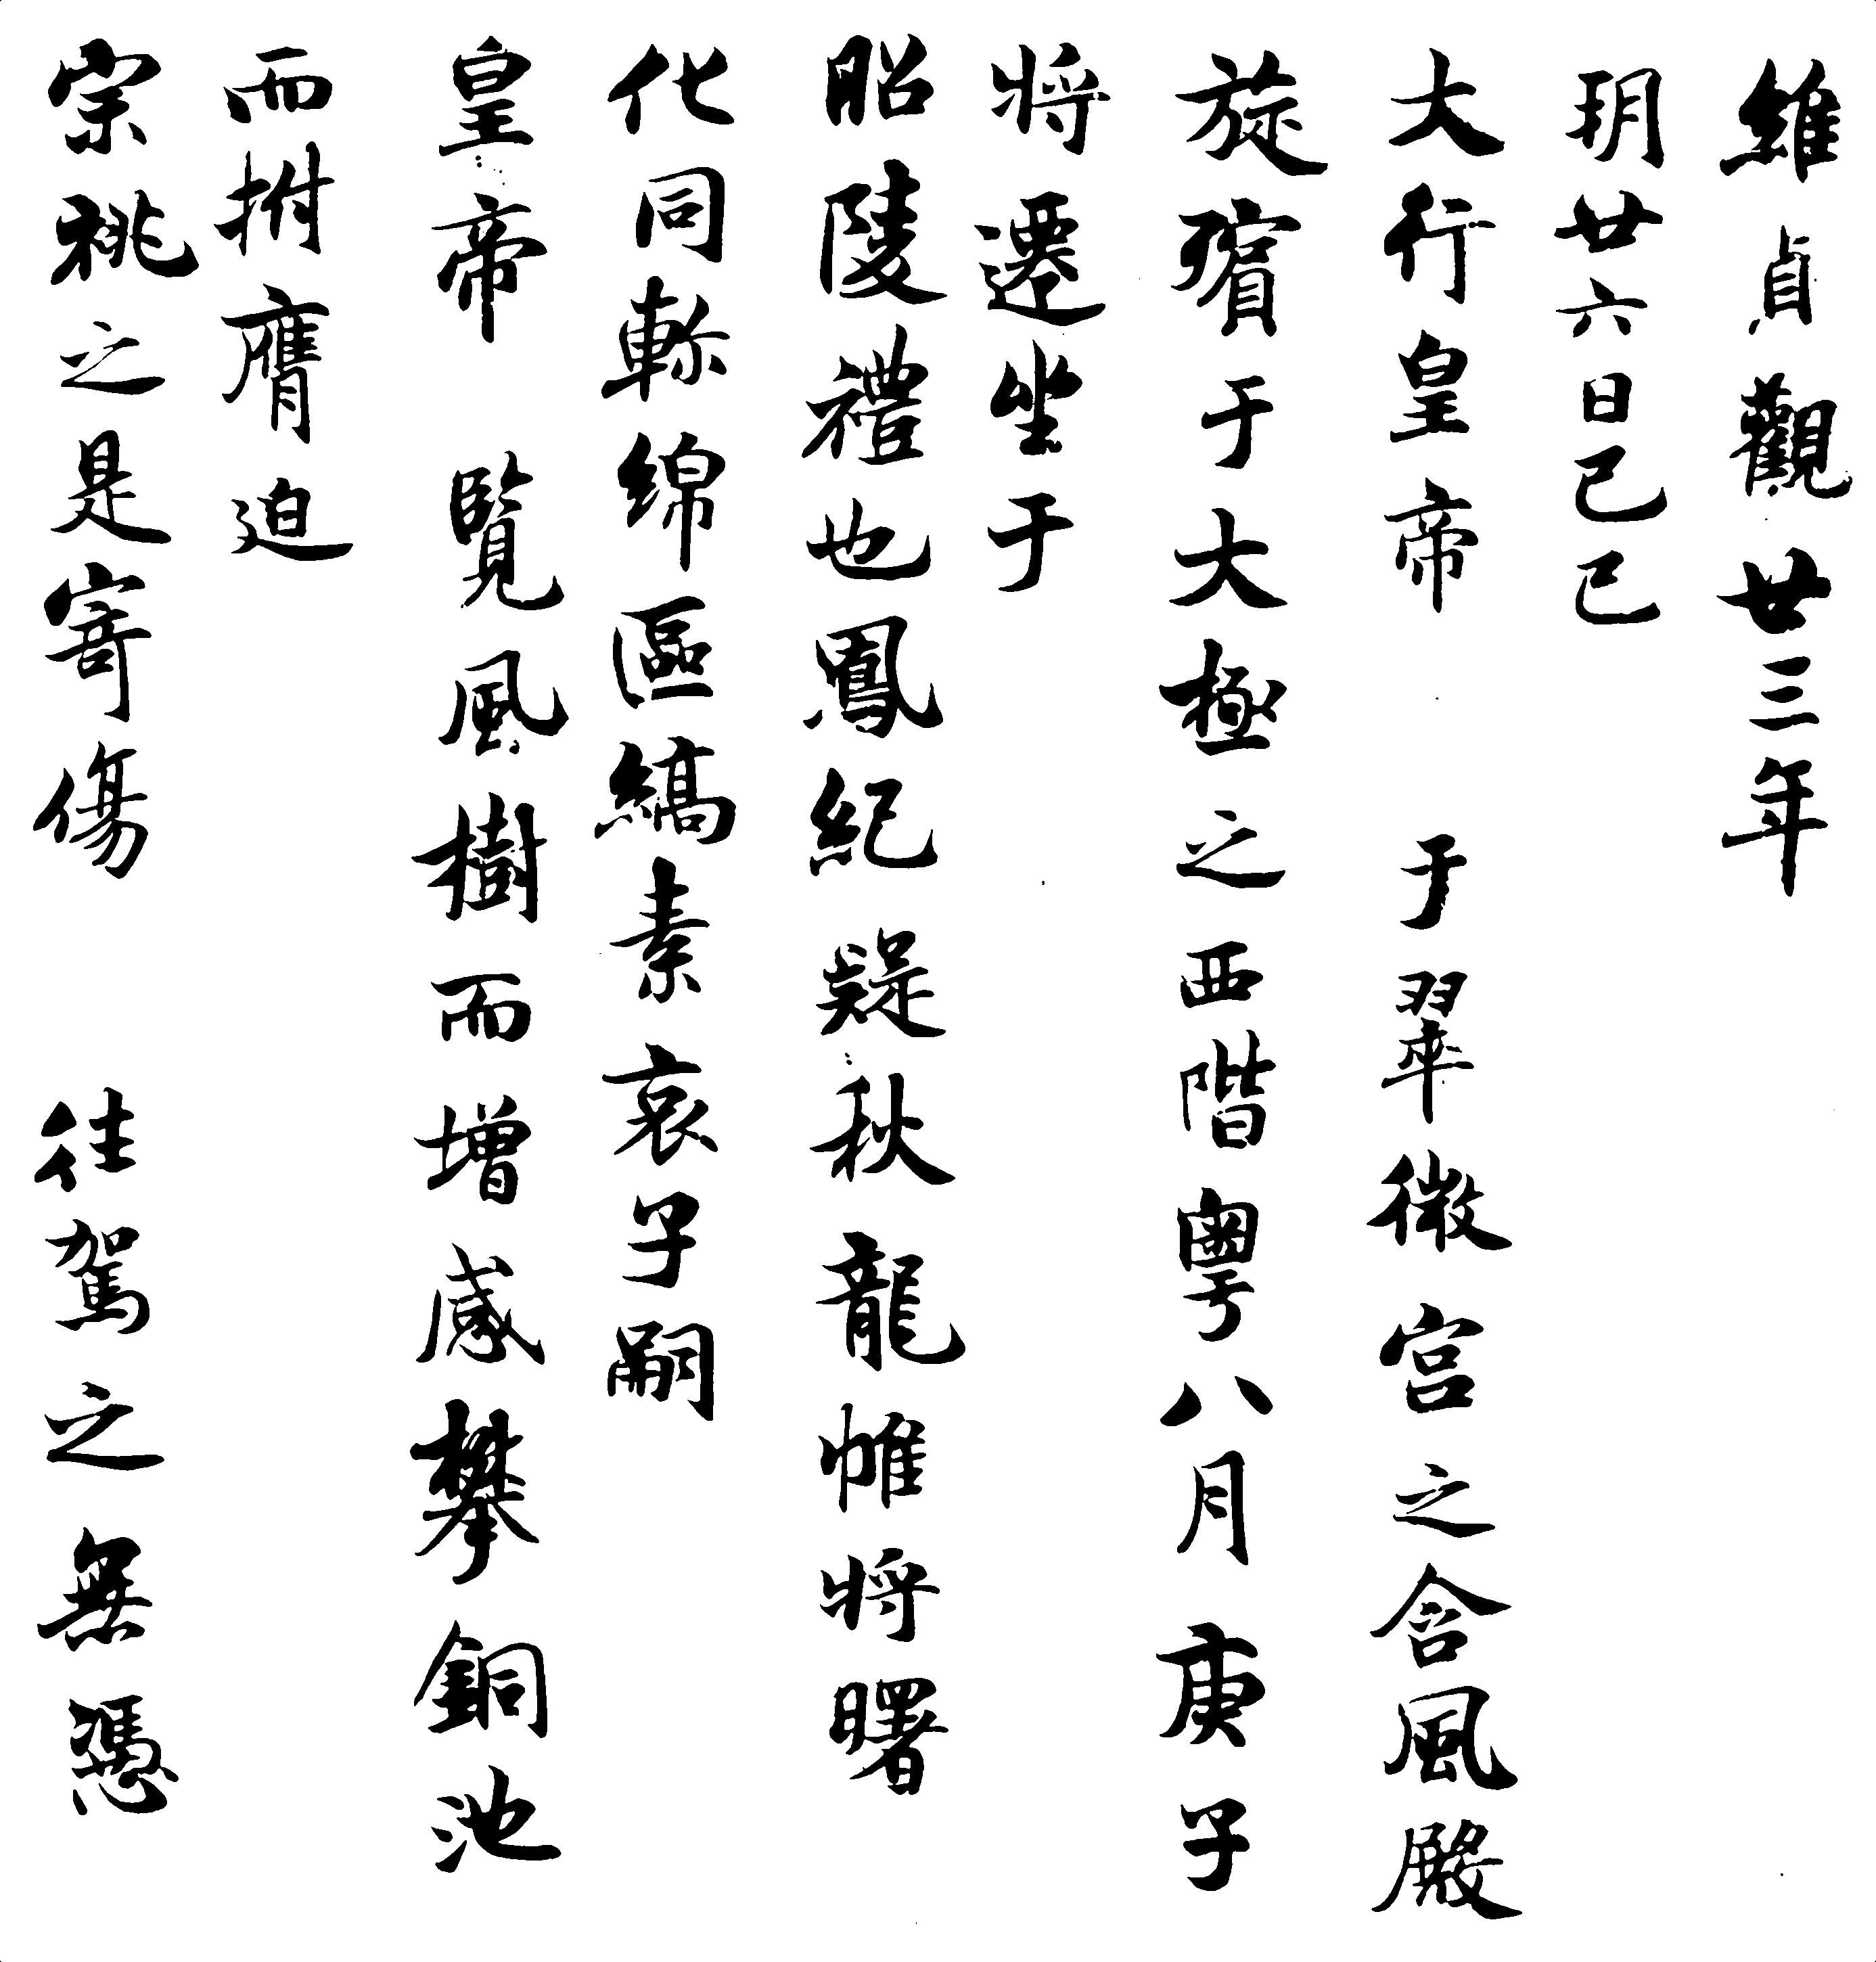 維貞觀廿三年
玥廿六日己巳
大行皇帝于翠微宮之含風殿
旋殯于大極之西階粵八月庚子
將遷坐于
昭陵禮也鳳紀疑秋龍帷將曙
化同軫綿區縞素哀子嗣
皇帝覽風樹而增感攀銅池
而拊膺迫
宗祧之是寄傷往駕之無憑